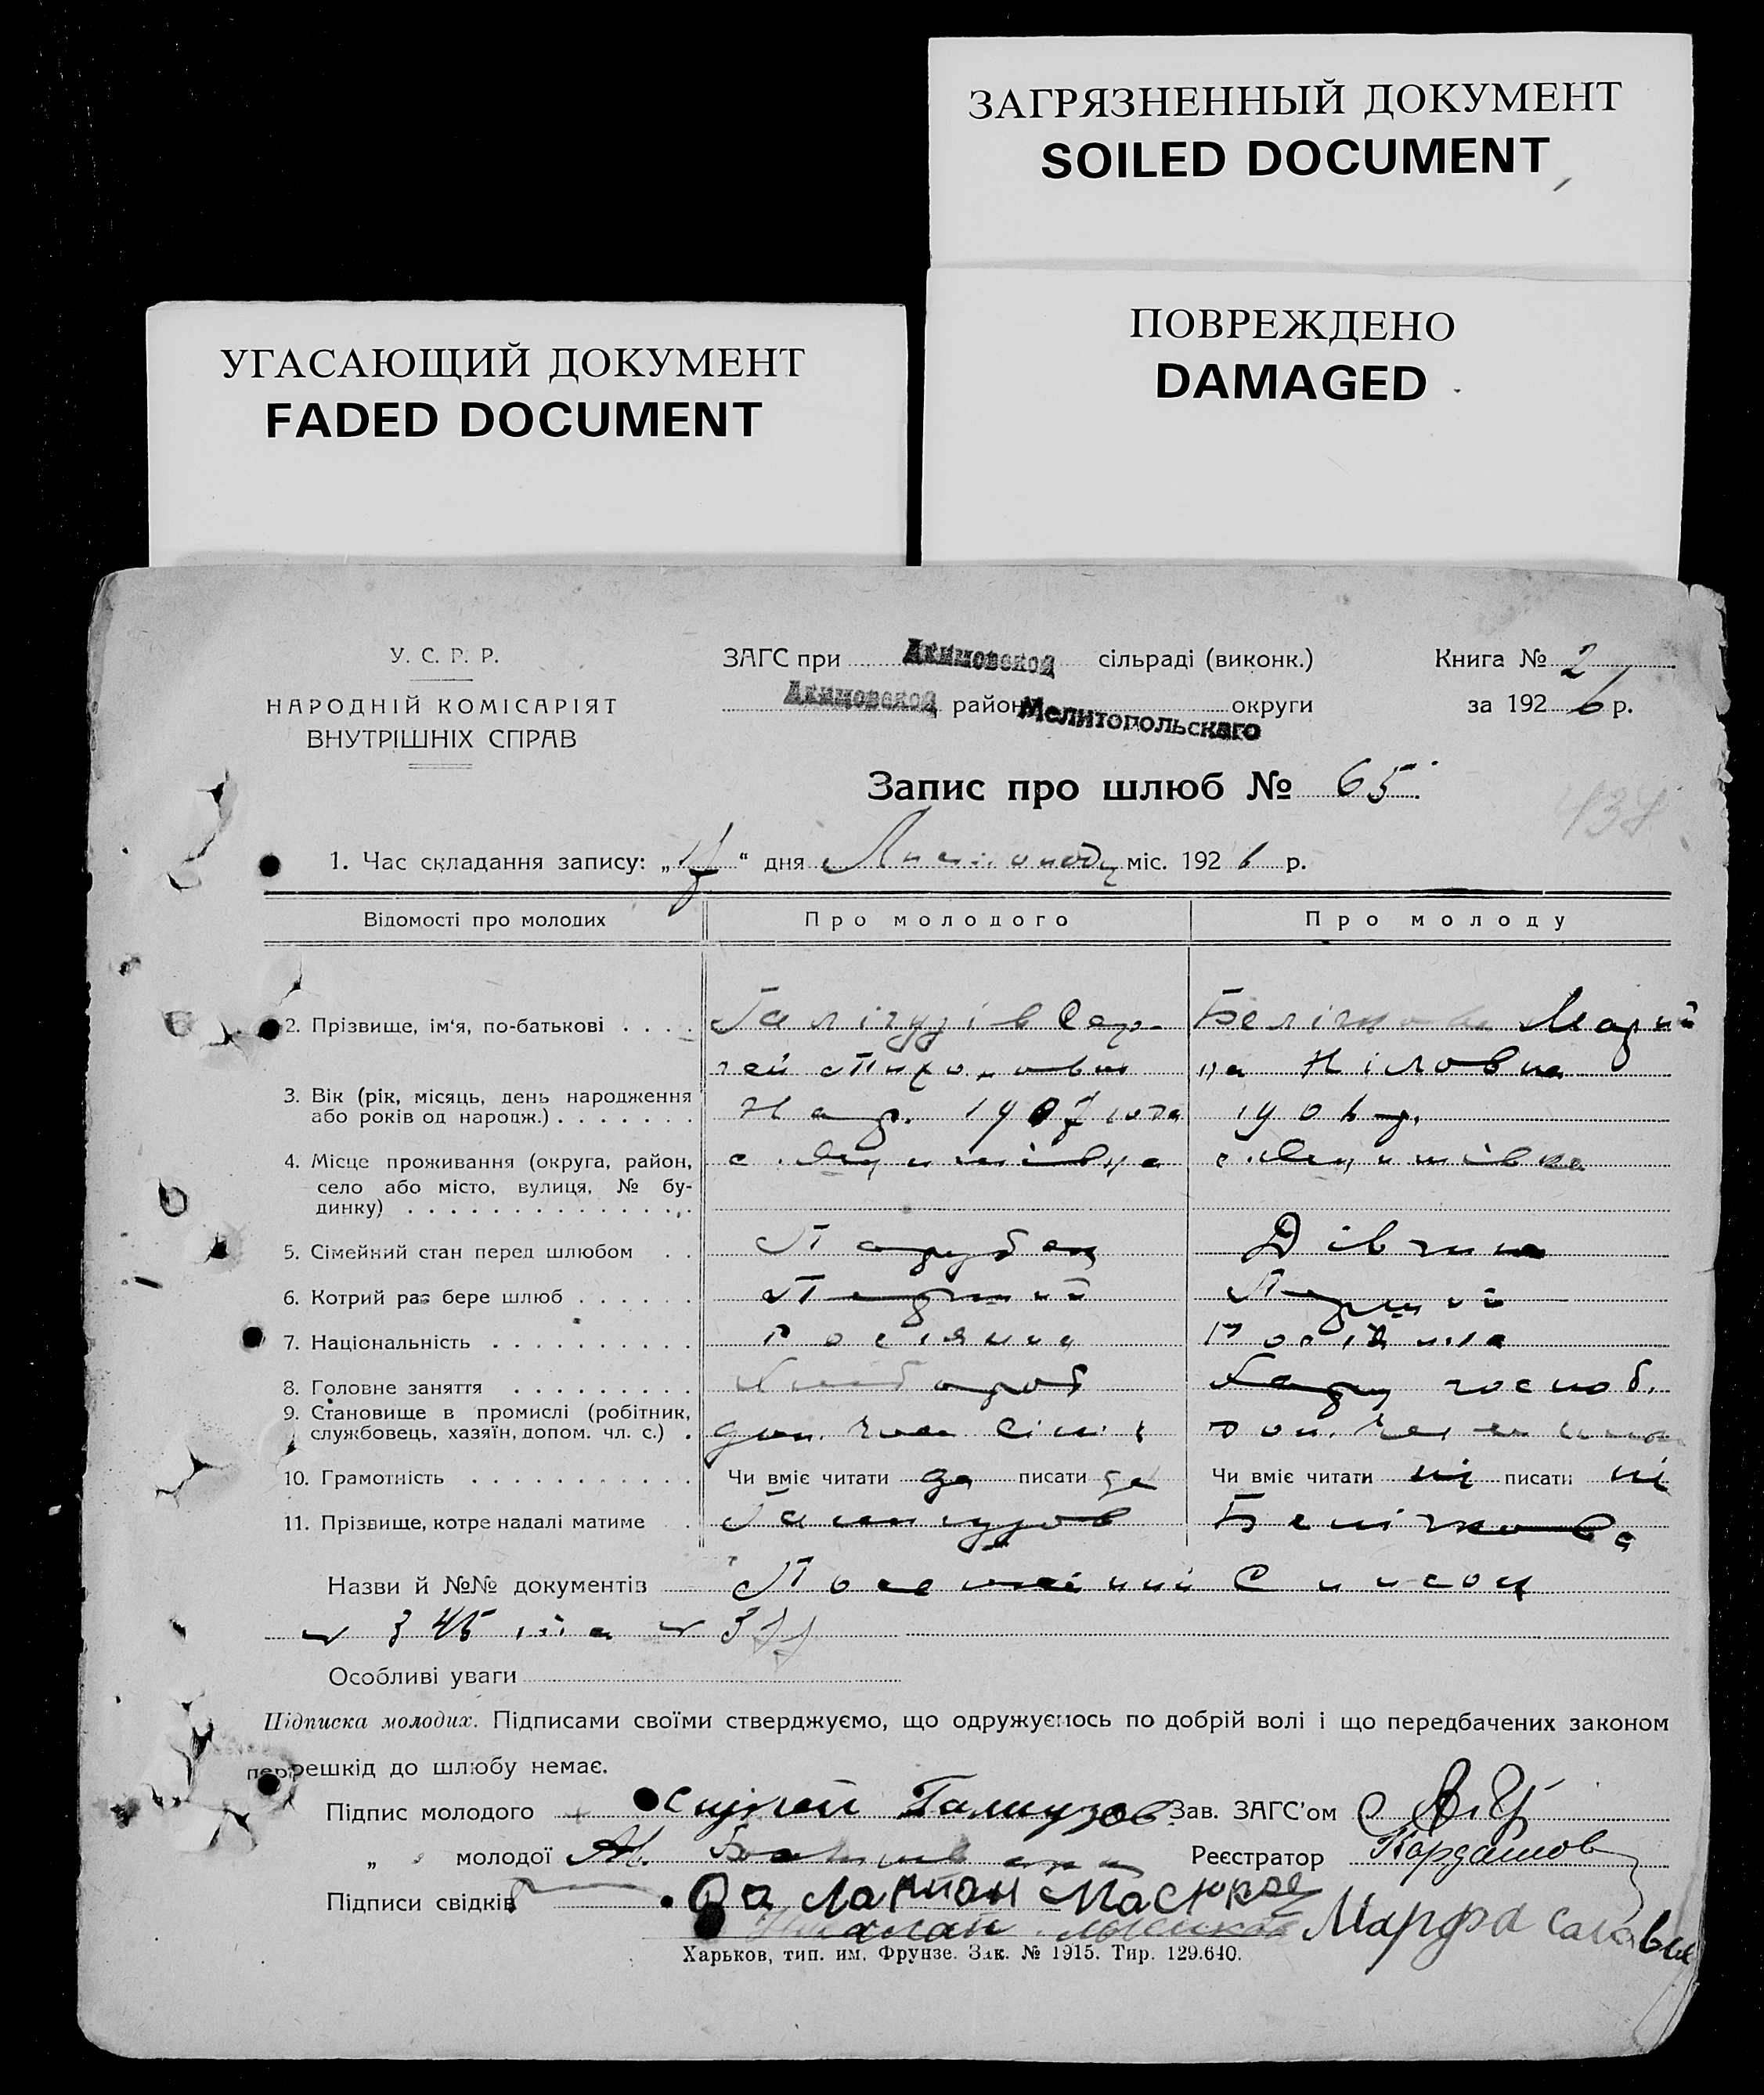 ЗАГРЯЗНЕННЫЙ ДОКУМЕНТ
SOILED DOCUMENT
УГАСАЮЩИЙ ДОКУМЕНТ
FADED DOCUMENT
ПОВРЕЖДЕНО
DAMAGED
У. С. Р. Р.
НАРОДНІЙ КОМІСАРІЯТ
ВНУТРІШНІХ СПРАВ
ЗАГС при Акимовской сільраді (виконк.)
Акимовской район Мелитопольскаго округи
Книга № 2
за 1926 р.
Запис про шлюб № 65
438
1. Час складання запису: „17“ дня Листопаду міс. 1926 р.
Відомості про молодих Про молодого Про молоду
2. Прізвище, ім‘я, по-батькові Галігузів Сер- Белічкова
гей Тихонович на Ніловна
3. Вік (рік, місяць, день народження
або років од народж.) Нар. 1907 1906 р.
4. Місце проживання (округа, район,
село або місто, вулиця, № бу-
динку)
5. Сімейний стан перед шлюбом Парубец Дівчина
6. Котрий раз бере шлюб Перший Перший
7. Національність Росіянин Росіянка
8. Головне заняття Хлібороб господ.
9. Становище в промислі (робітник,
службовець, хазяїн, допом. чл. с.) доп. член сім'ї доп. член
10. Грамотність Чи вміє читати да писати да Чи вміє читати ні писати ні
11. Прізвище, котре надалі матиме Галигузов Белічкова
Назви й №№ документів Посемейний Список
№ 345 та № 377
Особливі уваги
Підписка молодих. Підписами своїми стверджуємо, що одружуємось по добрій волі і що передбачених законом
перешкід до шлюбу немає.
Підпис молодого Сергей Галигузов Зав. ЗАГС’ом
„ молодої Реєстратор Кардашов
Підписи свідків
Марфа
Харьков, тип. им. Фрунзе. Зак. № 1915. Тир. 129.640.